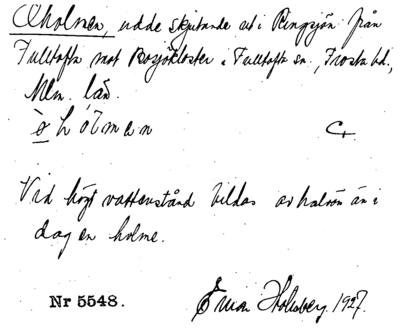 Öholmen, udde skjutande ut i Ringsjön från
Fulltofta mot Bosjökloster i Fulltofta sn., Frosta hd.,
Mlm. län.
Vid högt vattenstånd bildas av halvön än i
dag en holme.
Nr 5548. Holmberg. 1927.